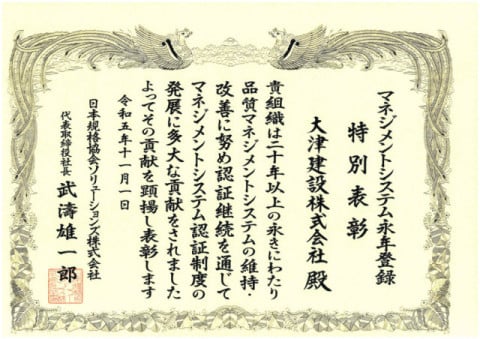 マネジメントシステム永年登録
特別表彰
大津建設株式会社 殿
貴組織は二十年以上の永きにわたり
品質マネジメントシステムの維持・
改善に努め認証継続を通じて
マネジメントシステム認証制度の
発展に多大な貢献をされました
よってその貢献を顕揚し表彰します
令和五年十一月一日
日本規格協会ソリューションズ株式会社
代表取締役社長 武濤雄一郎